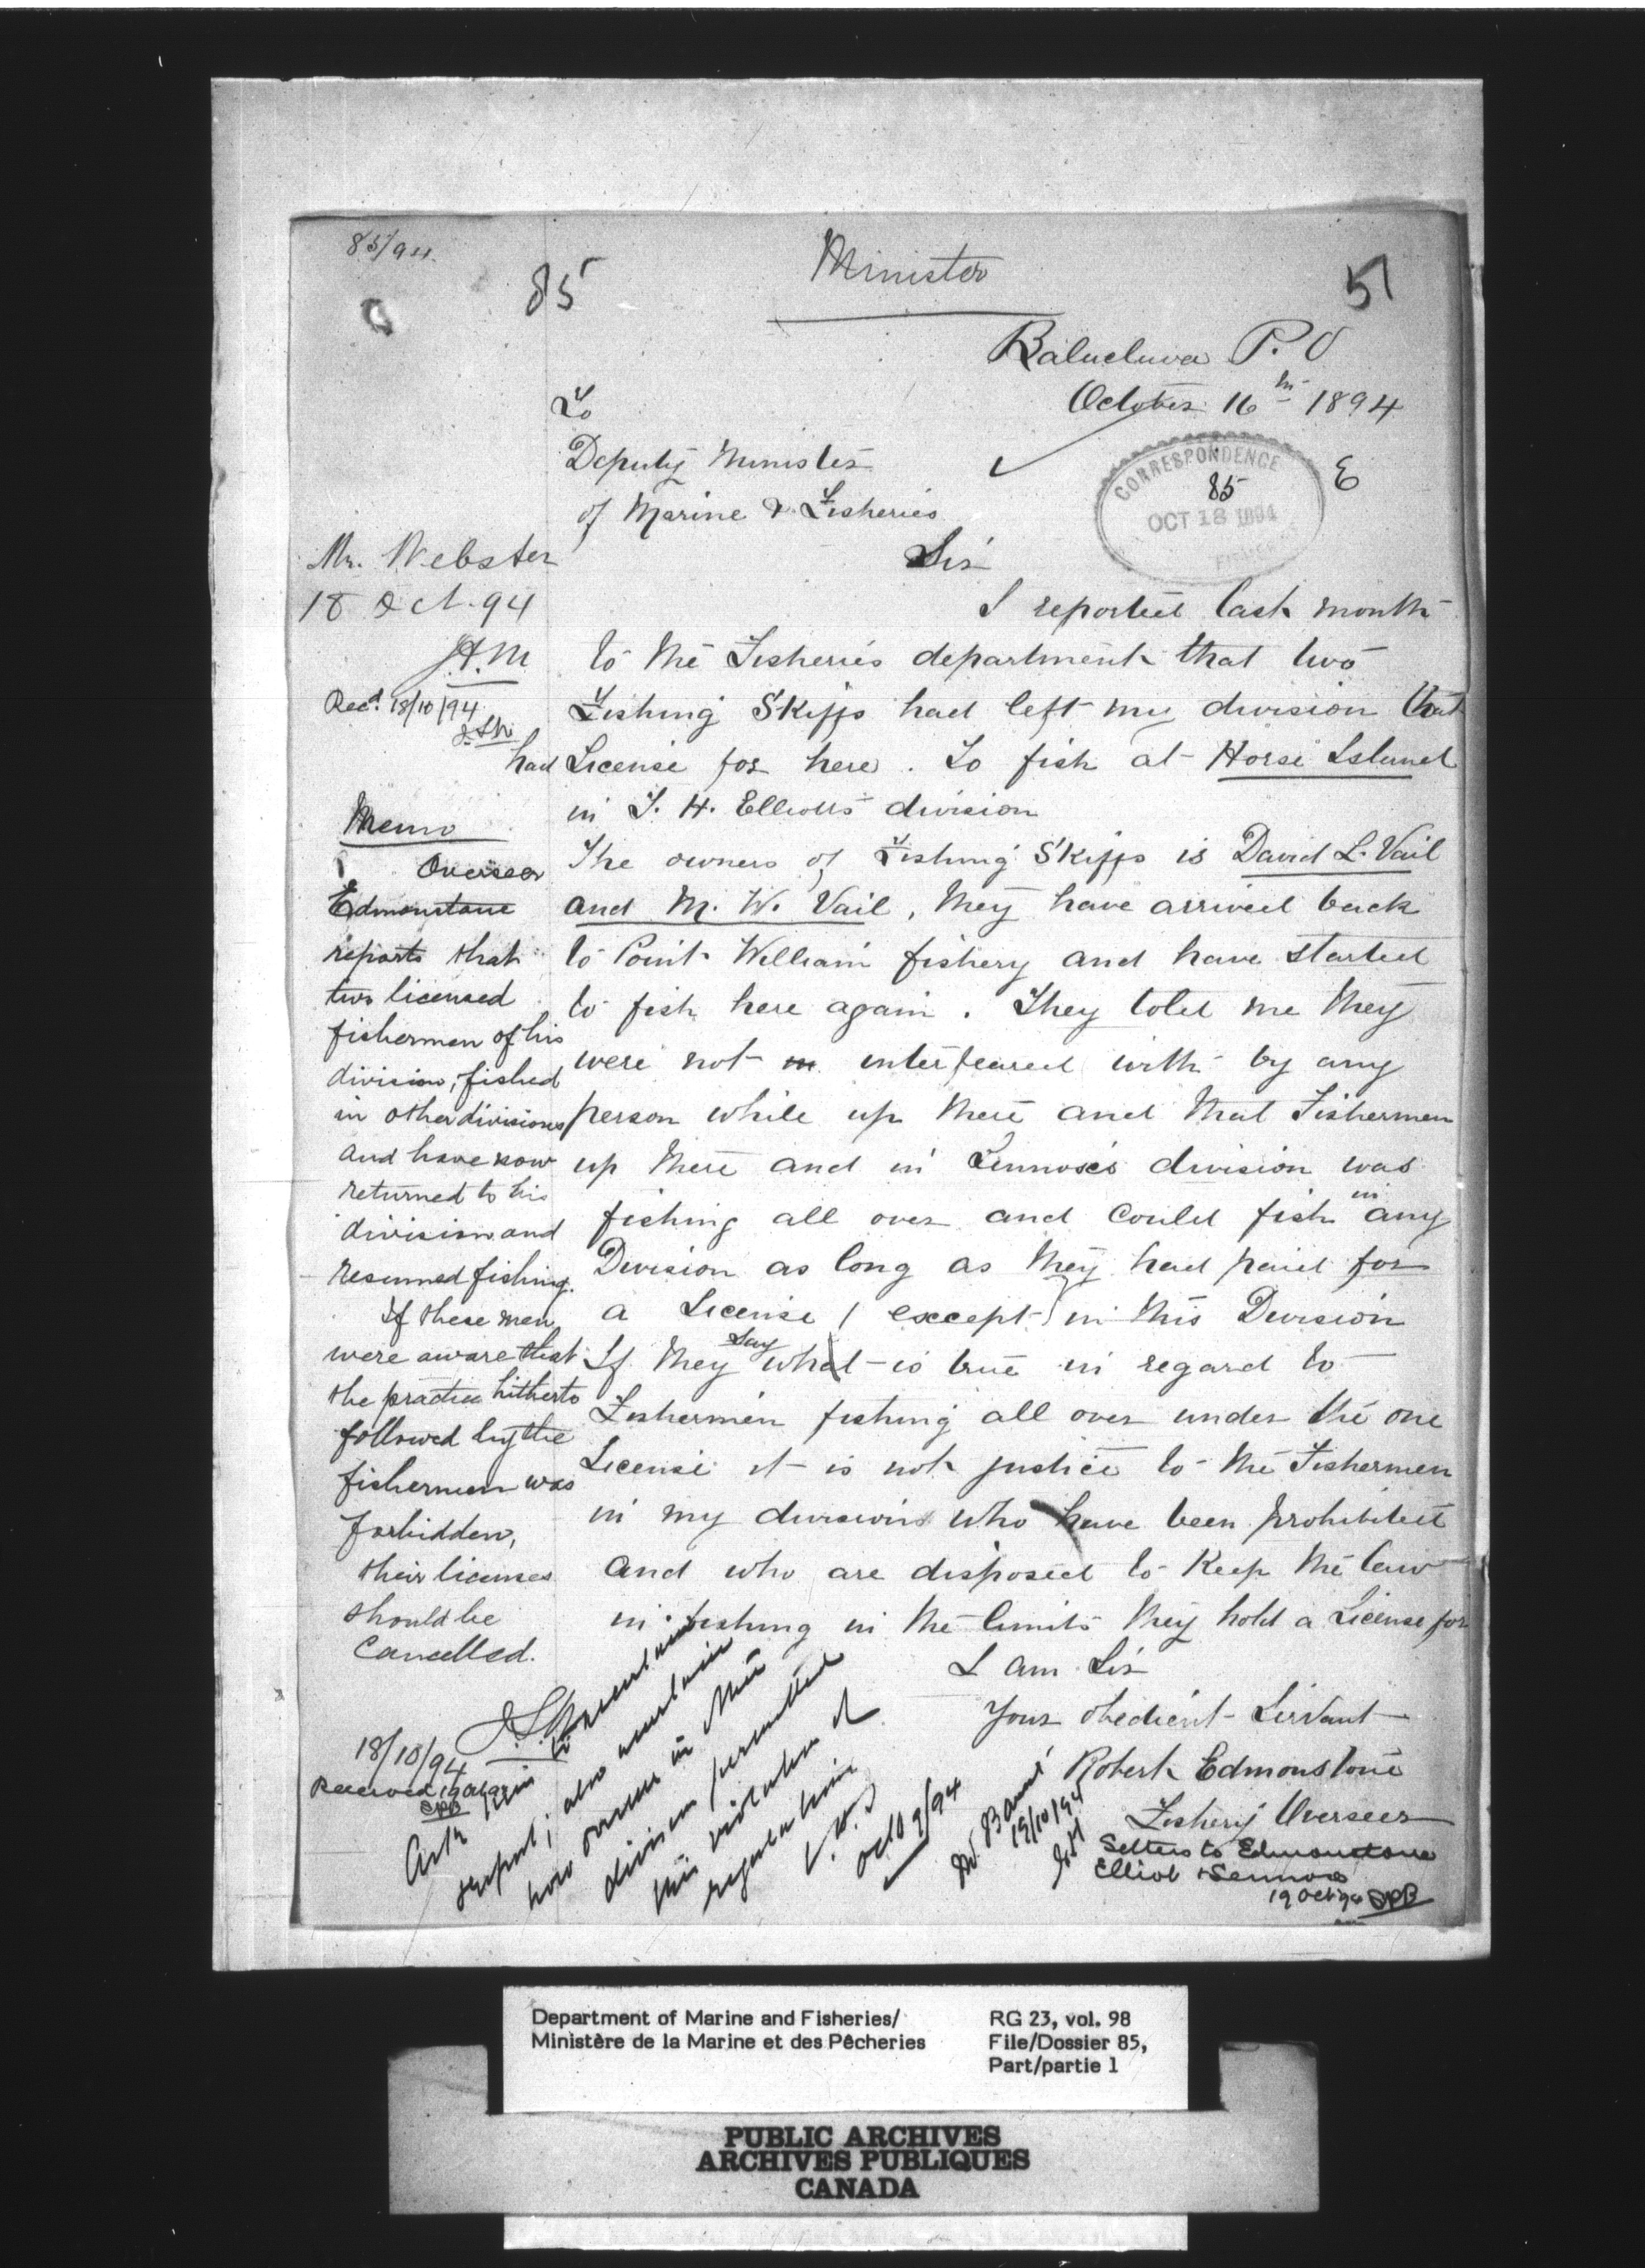 85/94.
85
Minister
51
Balaclava P. O
October 16th 1894
To
Deputy Minister
of Marine & Fisheries
CORRESPONDENCE
85
OCT 18 1894
E
Sir
Mr. Webster
18 Oct. 94
J.H.M
Recd. 18/10/94
I reported last month
to the Fisheries department that two
Fishing Skiffs had left my division that
had License for here. To fish at Horse Island
in T. H. Elliotts division
The owners of Fishing Skiffs is David L. Vail
and M. W. Vail, they have arrived back
to Point William fishery and have started
to fish here again. They told me they
were not interfeared with by any
person while up there and that Fishermen
up there and in Lennoxs division was
fishing all over and could fish in any
Division as long as they had paid for
a License (except) in this Division
If they say what is true in regard to
Fishermen fishing all over under the one
License it is not justice to the Fishermen
in my division who have been prohibited
and who are disposed to Keep the law
in fishing in the limits they hold a License for
I am Sir
Your obedient Servant
Robert Edmonstone
Fishery Overseer
Memo
Overseer
Edmonstone
reports that
two licensed
fishermen of his
division, fished
in other divisions
and have now
returned to his
division and
resumed fishing.
If these men
were aware that
the practice hitherto
followed by the
fishermen was
forbidden,
their licenses
should be
cancelled.
18/10/94
Received 19 Oct
Ask him to
report; also ascertain
how overseers in their
division permitted
this violation of
regulation
Oct 19/94
19/10/94
Letters to Edmonstone
Elliot & Lennox
19 Oct 94 SPB
Department of Marine and Fisheries/
Ministère de la Marine et des Pêcheries
RG 23, vol. 98
File/Dossier 85,
Part/partie 1
PUBLIC ARCHIVES
ARCHIVES PUBLIQUES
CANADA